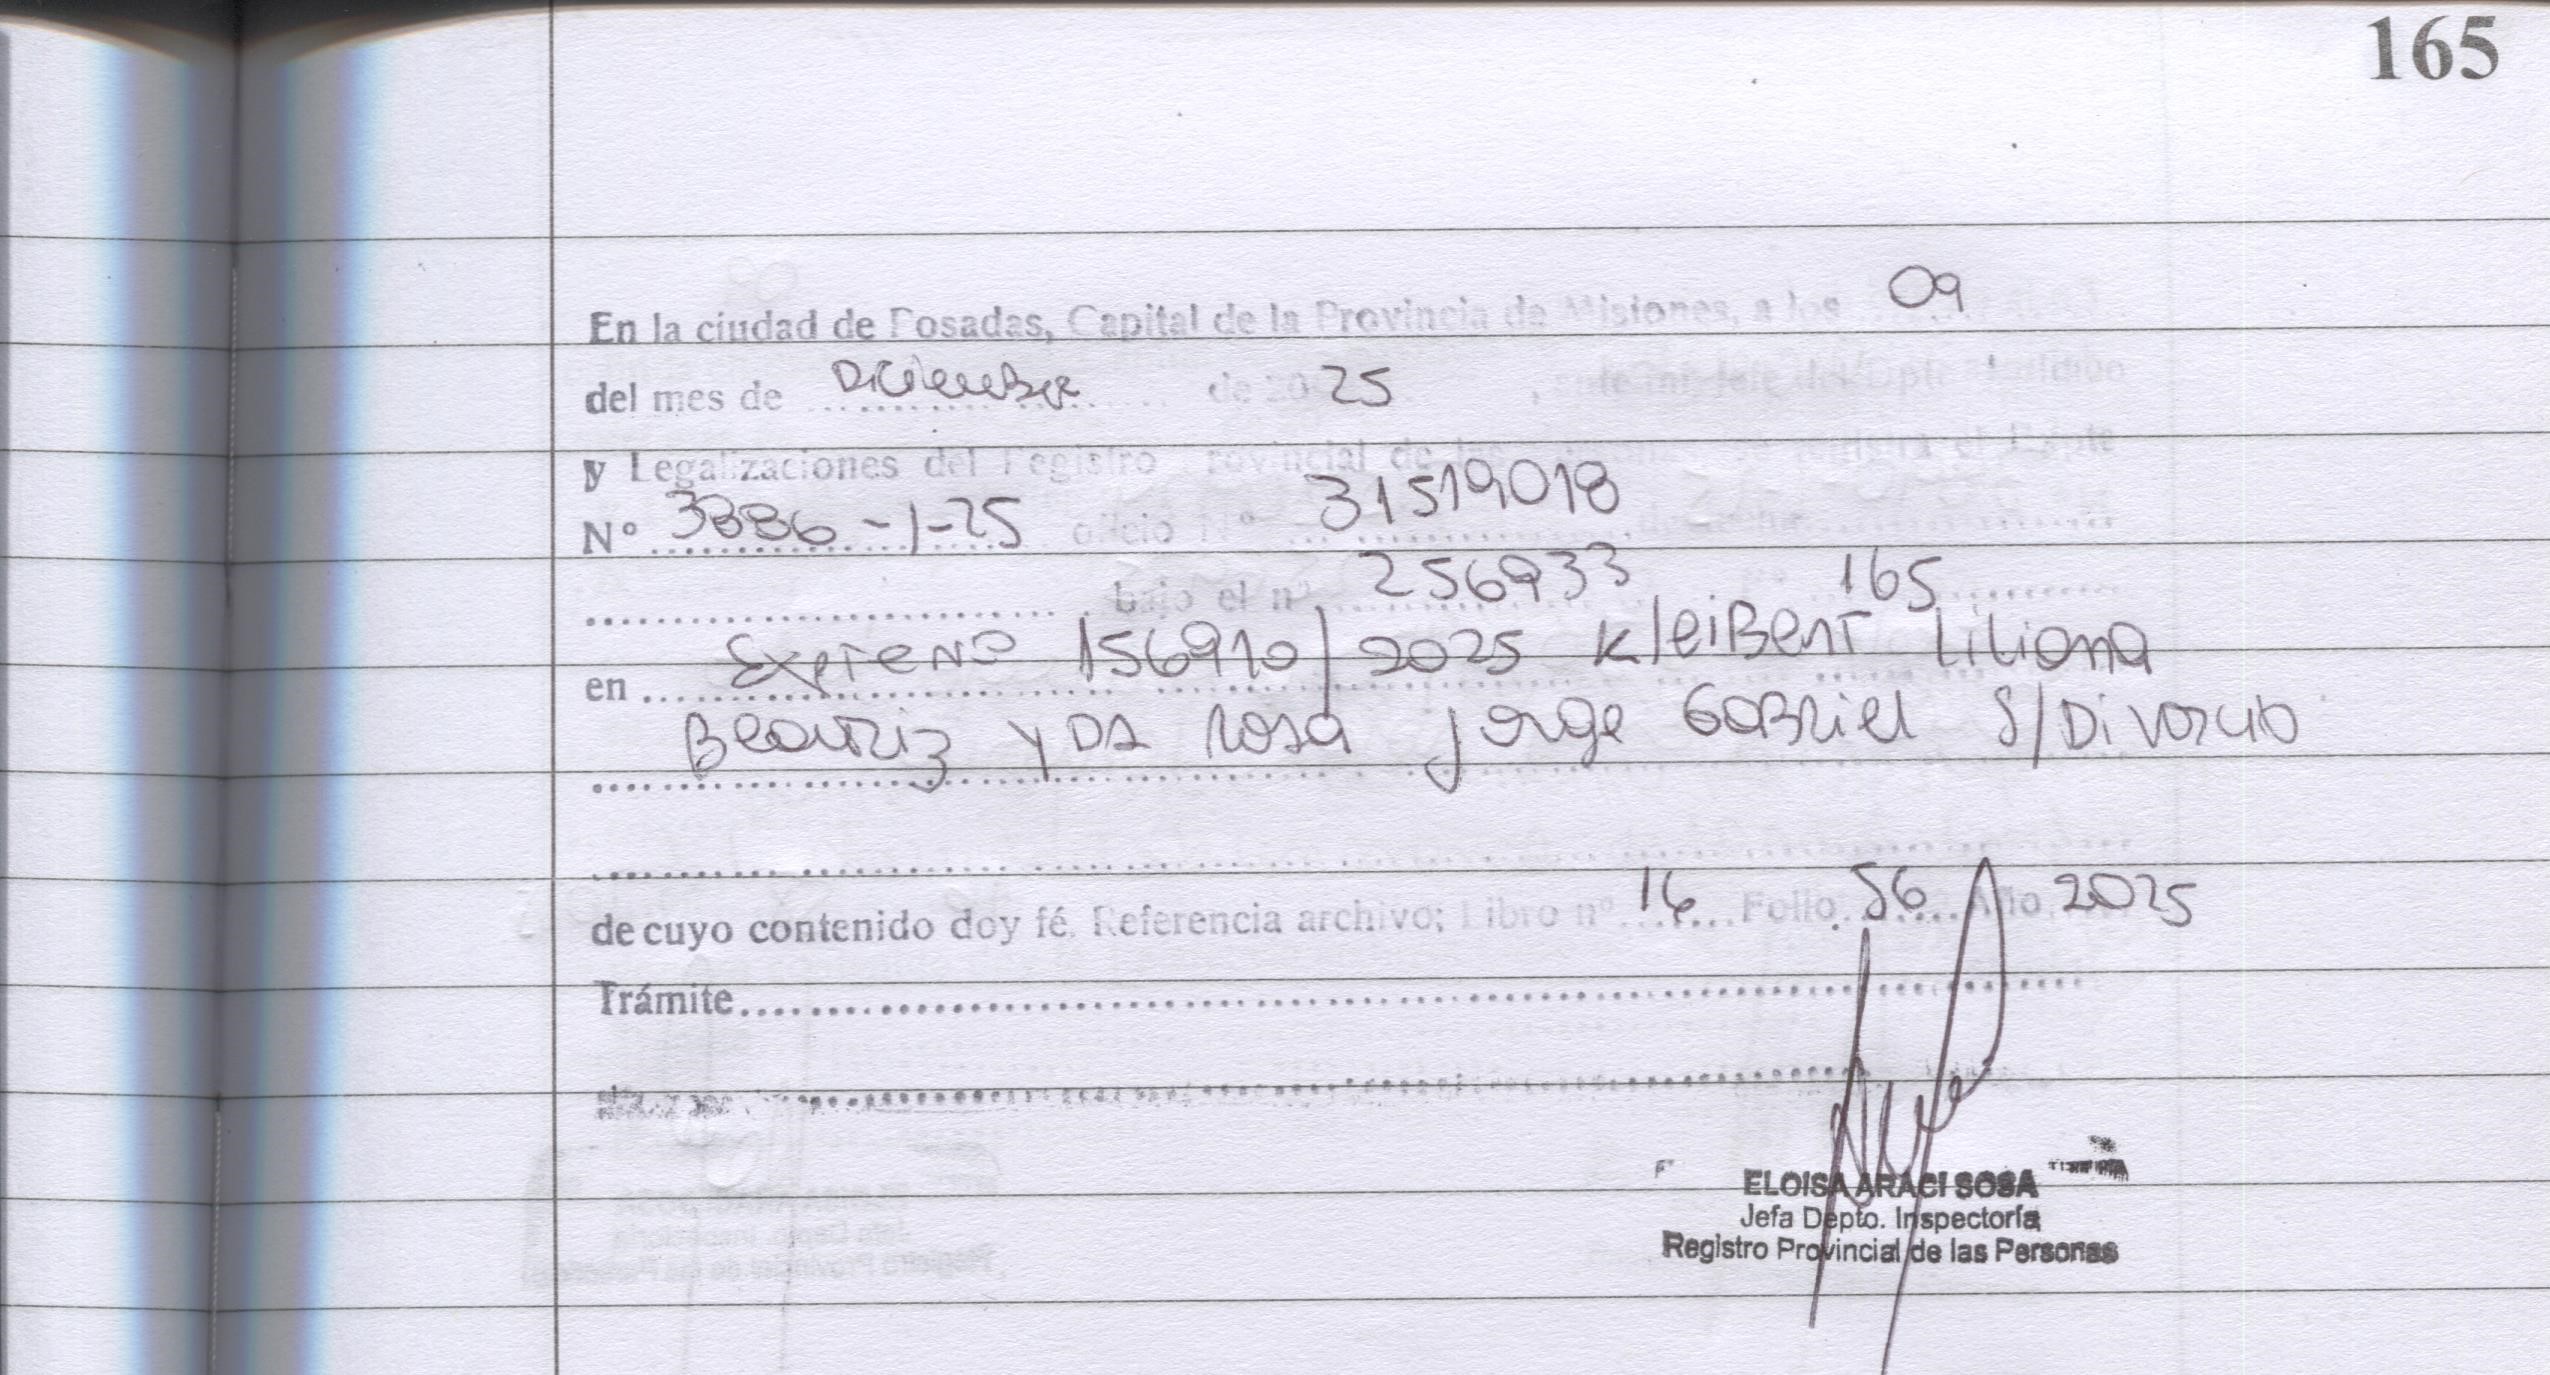 165
En la ciudad de Posadas, Capital de la Provincia de Misiones, a los 09
del mes de Diciembre de 20 25
y Legalizaciones del Registro Provincial de las registra el Expte
Nº 3886-1-25 oficio Nº 31519018
bajo el nº 256933 165
en Expte Nº 156910/2025 KleiBent Liliana
Beatriz y Da Rosa Jorge Gabriel S/Divorcio
de cuyo contenido doy fé. Referencia archivo; Libro nº 16 Folio 56 Año 2025
Trámite
ELOISA ARACI SOSA
Jefa Depto. Inspectoría
Registro Provincial de las Personas